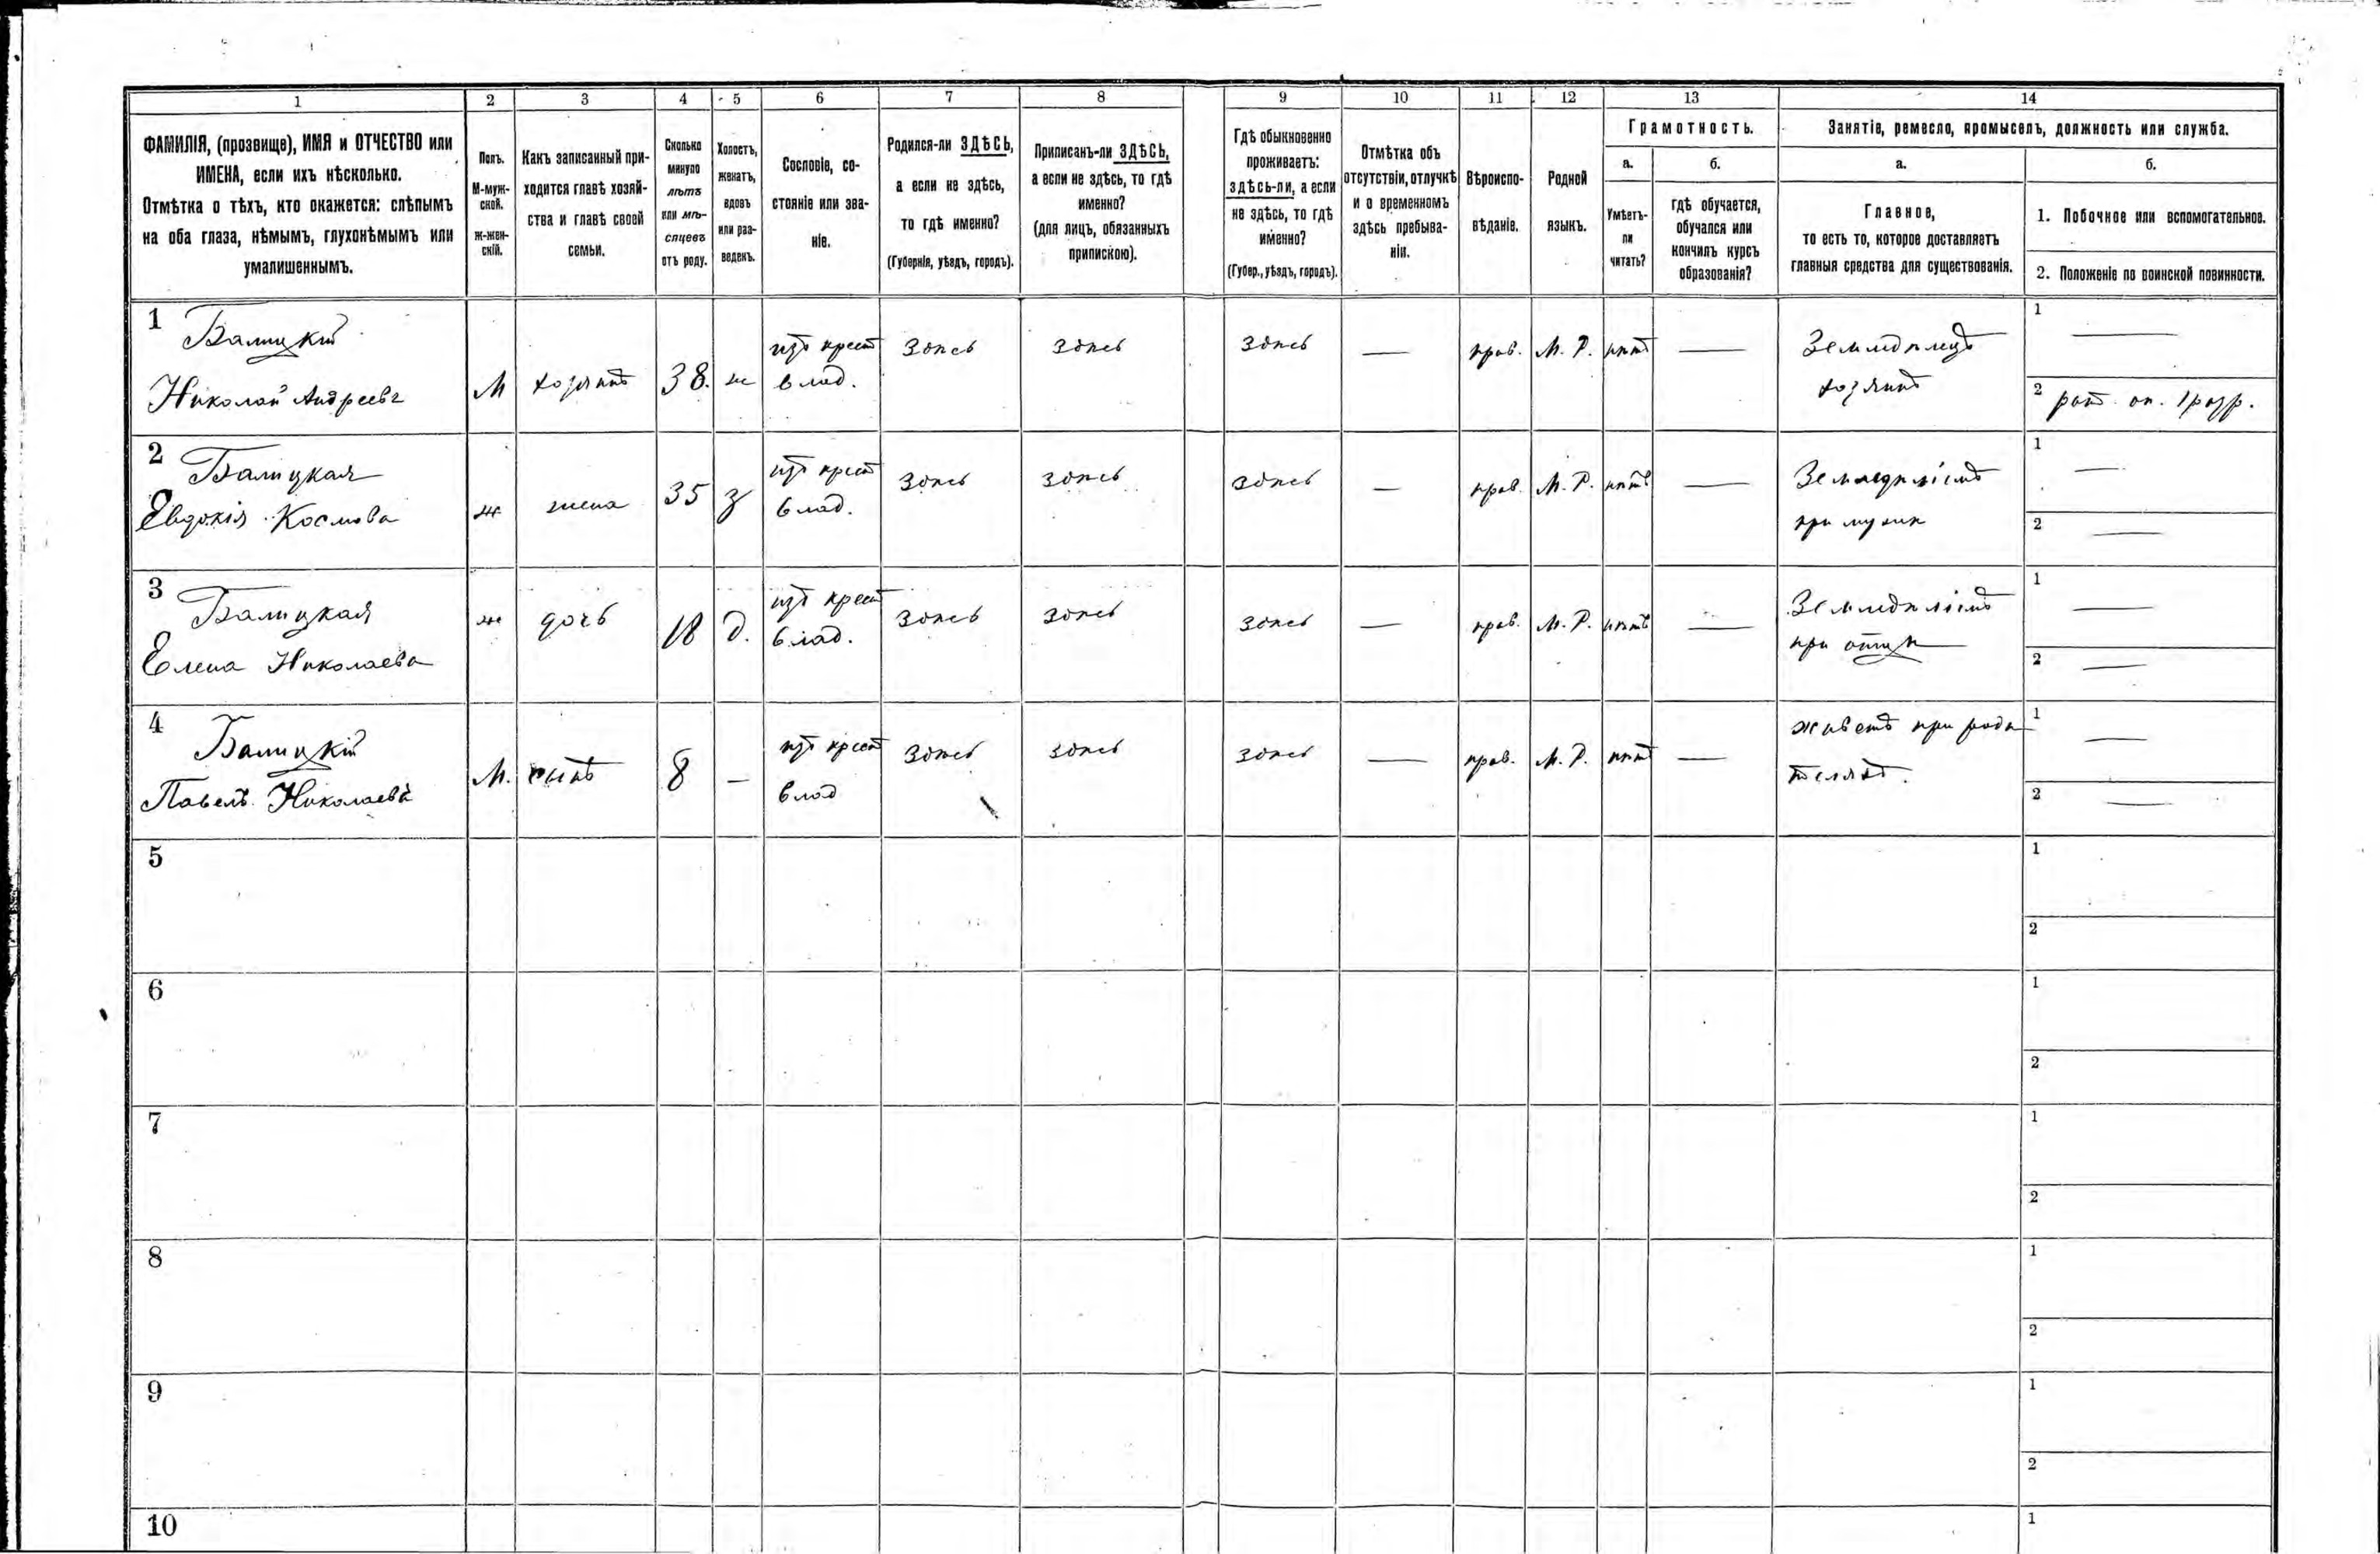 1 2 3 4 5 6 7 8 9 10 11 12 13 14
ФАМИЛІЯ, (прозвище), ИМЯ и ОТЧЕСТВО или
ИМЕНА, если ихъ нѣсколько.
Отмѣтка о тѣхъ, кто окажется: слѣпымъ
на оба глаза, нѣмымъ, глухонѣмымъ или
умалишеннымъ.
Полъ.
М-муж-
ской.
Ж-жен-
скій.
Какъ записанный при-
ходится главѣ хозяй-
ства и главѣ своей
семьи.
Сколько
минуло
лѣтъ
или мѣ-
сяцевъ
отъ роду.
Холостъ,
женатъ,
вдовъ
или раз-
веденъ.
Сословіе, со-
стояніе или зва-
ніе.
Родился-ли ЗДѢСЬ,
а если не здѣсь,
то гдѣ именно?
(Губернія, уѣздъ, городъ).
Приписанъ-ли ЗДѢСЬ,
а если не здѣсь, то гдѣ
именно?
(для лицъ, обязанныхъ
припискою).
Гдѣ обыкновенно
проживаетъ:
здѣсь-ли, а если
не здѣсь, то гдѣ
именно?
(Губер., уѣздъ, городъ).
Отмѣтка объ
отсутствіи, отлучкѣ
и о временномъ
здѣсь пребыва-
ніи.
Вѣроиспо-
вѣданіе.
Родной
языкъ.
Грамотность.
а.
Умѣетъ-
ли
читать?
б.
гдѣ обучается,
обучался или
кончилъ курсъ
образованія?
Занятіе, ремесло, промыселъ, должность или служба.
а.
Главное,
то есть то, которое доставляетъ
главныя средства для существованія.
б.
1. Побочное или вспомогательное.
2. Положеніе по воинской повинности.
1 Балицкій
Николай Андреевъ
М
хозяинъ
38.
ж
изъ крест
влад.
здѣсь
здѣсь
здѣсь
—
прав.
М. Р.
нѣтъ
—
Земледѣлецъ
хозяинъ
1 —
2 рат. оп. 1 разр.
2 Балицкая
Евдокія Космова
ж
жена
35
з
изъ крест
влад.
здѣсь
здѣсь
здѣсь
—
прав.
М. Р.
нѣтъ
—
при мужѣ
1 —
2 —
3 Балицкая
Елена Николаева
ж
дочь
18
д.
изъ крест
влад.
здѣсь
здѣсь
здѣсь
—
прав.
М. Р.
нѣтъ
—
при отцѣ
1 —
2 —
4 Балицкій
Павелъ Николаевъ
М.
сынъ
8
—
изъ крест
влад
здѣсь
здѣсь
здѣсь
—
прав.
М. Р.
нѣтъ
—
живетъ при роди
теляхъ.
1 —
2 —
5
1
2
6
1
2
7
1
2
8
1
2
9
1
2
10
1